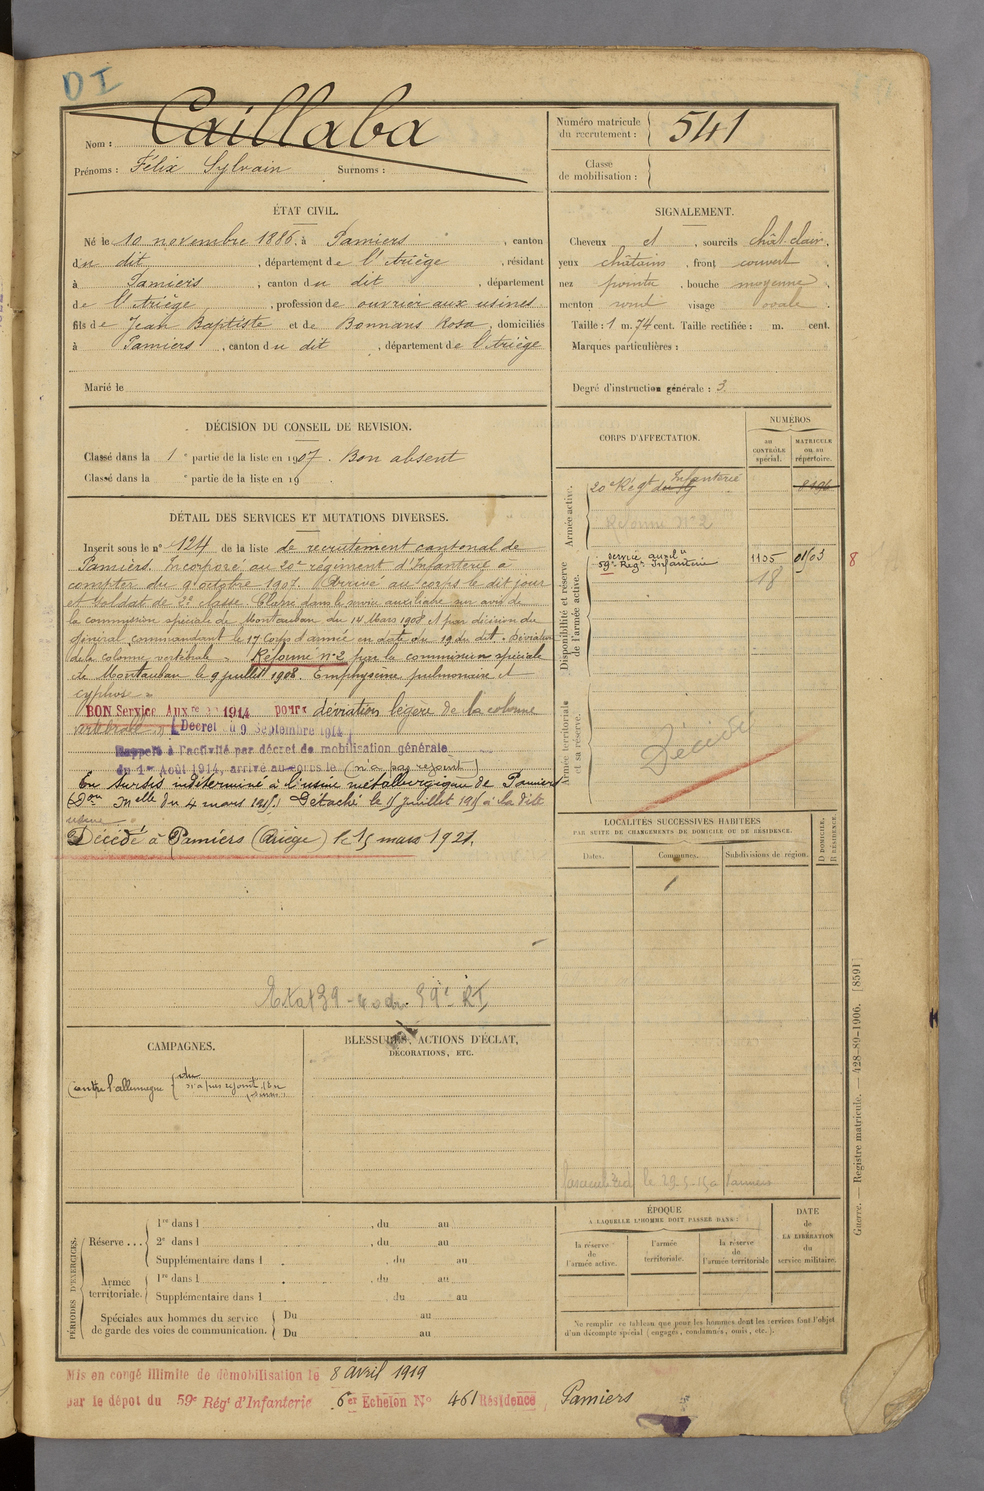 DI
Nom : Caillaba
Prénoms : Félix Sylvain Surnoms :
Numéro matricule du recrutement : 541
Classe de mobilisation :
ÉTAT CIVIL.
Né le 10 novembre 1886, à Pamiers , canton
du dit , département de l'Ariège , résidant
à Pamiers , canton du dit , département
de l'Ariège , profession de ouvrier aux usines
fils de Jean Baptiste et de Bonnans Rosa , domiciliés
à Pamiers , canton du dit , département de l'Ariège
Marié le
SIGNALEMENT.
Cheveux et , sourcils chât. clair,
yeux châtains , front couvert
nez pointu , bouche moyenne ,
menton rond visage ovale
Taille : 1 m. 74 cent. Taille rectifiée : m. cent.
Marques particulières :
Degré d'instruction générale : 3
DÉCISION DU CONSEIL DE REVISION.
Classé dans la 1e partie de la liste en 1907. Bon absent
Classé dans la e partie de la liste en 19 .
CORPS D'AFFECTATION.
NUMÉROS
AU CONTRÔLE spécial.
MATRICULE OU AU répertoire.
Armée active.
20e Régt d'Infanterie
Réformé N°2
Disponibilité et réserve de l'armée active.
service auxil.re
59e Régt Infanterie 1105 01/03 8
18
Armée territoriale et sa réserve.
Décédé
DÉTAIL DES SERVICES ET MUTATIONS DIVERSES.
Inscrit sous le n° 124 de la liste de recrutement cantonal de
Pamiers. Incorporé au 20e régiment d'Infanterie à
compter du 9 octobre 1907. Arrivé au corps le dit jour
et soldat de 2e classe. Classé dans le service auxiliaire sur avis de
la commission spéciale de Montauban du 14 Mars 1908 et par décision du
général commandant le 17e corps d'armée en date du 19 du dit. Déviation
de la colonne vertébrale. Réformé n°2 par la commission spéciale
de Montauban le 9 juillet 1908. Emphysème pulmonaire et
cyphose
BON Service Auxre 1914 pour déviation légère de la colonne
vertébrale (Decret du 9 Septembre 1914)
Rappelé à l'activité par décret de mobilisation générale
du 1er Août 1914, arrivé au corps le (n'a pas rejoint)
En sursis indéterminé à l'usine métallurgique de Pamiers
(Don Melle du 4 mars 1915) Détaché le 15 juillet 1915 à la dite
usine
Décédé à Pamiers (Ariège) le 15 mars 1921.
59e RI
LOCALITÉS SUCCESSIVES HABITÉES
PAR SUITE DE CHANGEMENTS DE DOMICILE OU DE RÉSIDENCE.
Dates. Communes. Subdivisions de région. D DOMICILE. R RÉSIDENCE.
CAMPAGNES.
Contre l'allemagne { du n'a pas rejoint
BLESSURES, ACTIONS D'ÉCLAT,
DÉCORATIONS, ETC.
PÉRIODES D'EXERCICES.
Réserve ... 1re dans l , du au
2e dans l , du au
Supplémentaire dans l , du au
Armée territoriale. 1re dans l , du au
Supplémentaire dans l du au
Spéciales aux hommes du service de garde des voies de communication. Du au
Du au
ÉPOQUE
A LAQUELLE L'HOMME DOIT PASSER DANS :
la réserve de l'armée active.
l'armée territoriale.
la réserve de l'armée territoriale
DATE de LA LIBÉRATION du service militaire.
Ne remplir ce tableau que pour les hommes dont les services font l'objet
d'un décompte spécial (engagés, condamnés, omis, etc.).
Guerre. — Registre matricule. — 428-89-1906. [8591]
Mis en congé illimité de démobilisation le 8 avril 1919
par le dépot du 59e Régt d'Infanterie 6er Echelon No 461 Résidence Pamiers